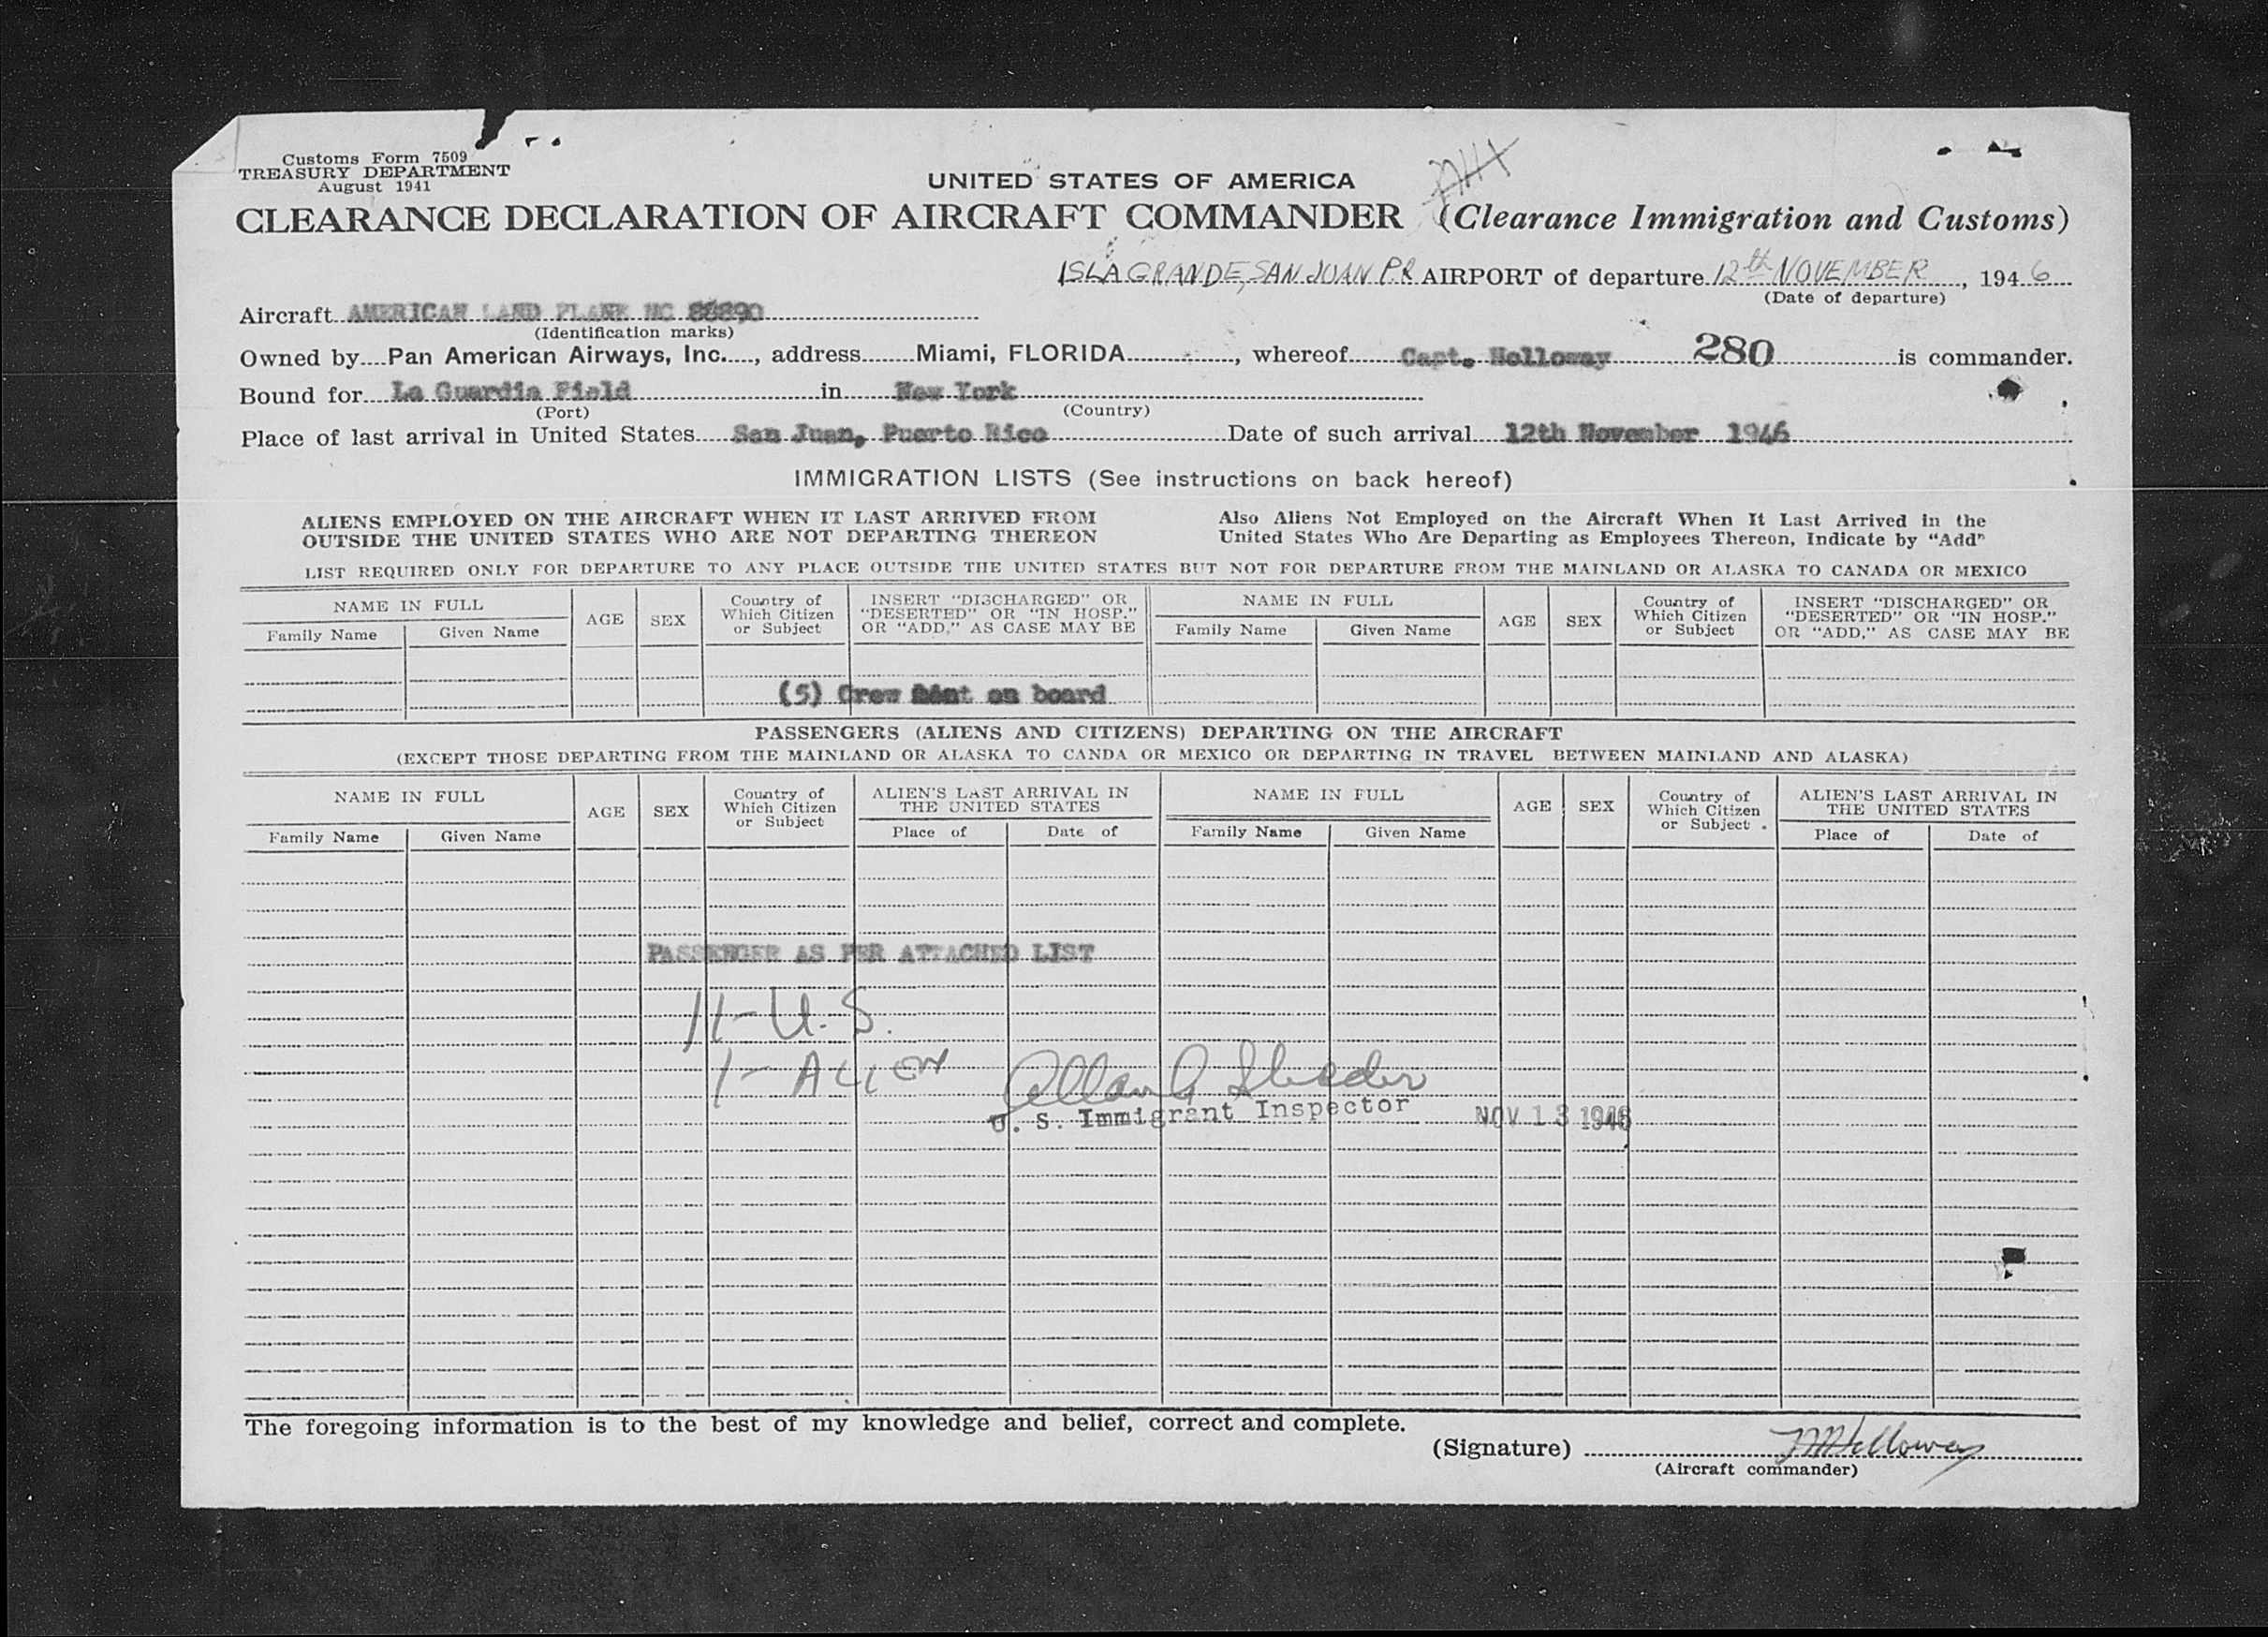 Customs Form 7509
TREASURY DEPARTMENT
August 1941
UNITED STATES OF AMERICA
CLEARANCE DECLARATION OF AIRCRAFT COMMANDER (Clearance Immigration and Customs)
ISLA GRANDE, SAN JUAN P.R AIRPORT of departure 12th NOVEMBER, 1946
(Date of departure)
Aircraft AMERICAN LAND PLANE NC 88890
(Identification marks)
Owned by Pan American Airways, Inc., address Miami, FLORIDA, whereof Capt. Holloway 280 is commander.
Bound for La Guardia Field in New York
(Port) (Country)
Place of last arrival in United States San Juan, Puerto Rico Date of such arrival 12th November 1946
IMMIGRATION LISTS (See instructions on back hereof)
ALIENS EMPLOYED ON THE AIRCRAFT WHEN IT LAST ARRIVED FROM
OUTSIDE THE UNITED STATES WHO ARE NOT DEPARTING THEREON
Also Aliens Not Employed on the Aircraft When It Last Arrived in the
United States Who Are Departing as Employees Thereon, Indicate by "Add"
LIST REQUIRED ONLY FOR DEPARTURE TO ANY PLACE OUTSIDE THE UNITED STATES BUT NOT FOR DEPARTURE FROM THE MAINLAND OR ALASKA TO CANADA OR MEXICO
NAME IN FULL
Family Name Given Name
AGE
SEX
Country of
Which Citizen
or Subject
INSERT "DISCHARGED" OR
"DESERTED" OR "IN HOSP."
OR "ADD," AS CASE MAY BE
NAME IN FULL
Family Name Given Name
AGE
SEX
Country of
Which Citizen
or Subject
INSERT "DISCHARGED" OR
"DESERTED" OR "IN HOSP."
OR "ADD," AS CASE MAY BE
(5) Crew on board
PASSENGERS (ALIENS AND CITIZENS) DEPARTING ON THE AIRCRAFT
(EXCEPT THOSE DEPARTING FROM THE MAINLAND OR ALASKA TO CANDA OR MEXICO OR DEPARTING IN TRAVEL BETWEEN MAINLAND AND ALASKA)
NAME IN FULL
Family Name Given Name
AGE
SEX
Country of
Which Citizen
or Subject
ALIEN'S LAST ARRIVAL IN
THE UNITED STATES
Place of Date of
NAME IN FULL
Family Name Given Name
AGE
SEX
Country of
Which Citizen
or Subject
ALIEN'S LAST ARRIVAL IN
THE UNITED STATES
Place of Date of
PASSENGER AS PER ATTACHED LIST
11- U.S.
1- ALIEN
Allan G
U. S. Immigrant Inspector NOV 13 1946
The foregoing information is to the best of my knowledge and belief, correct and complete.
(Signature) Holloway
(Aircraft commander)